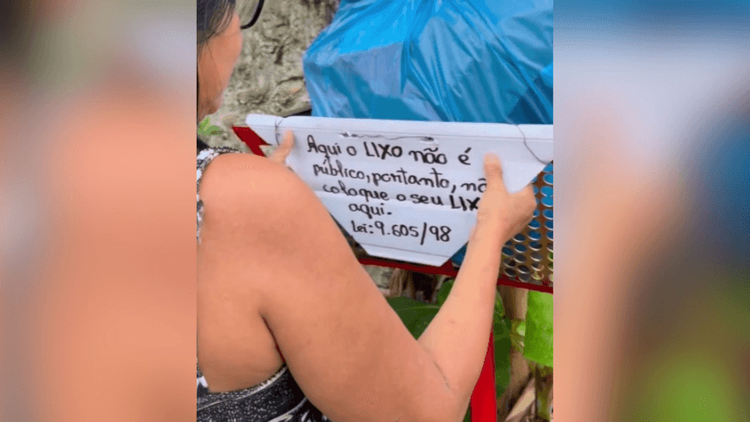 Aqui o LIXO não é
público, portanto,
coloque o seu
aqui.
Lei: 9.605/98